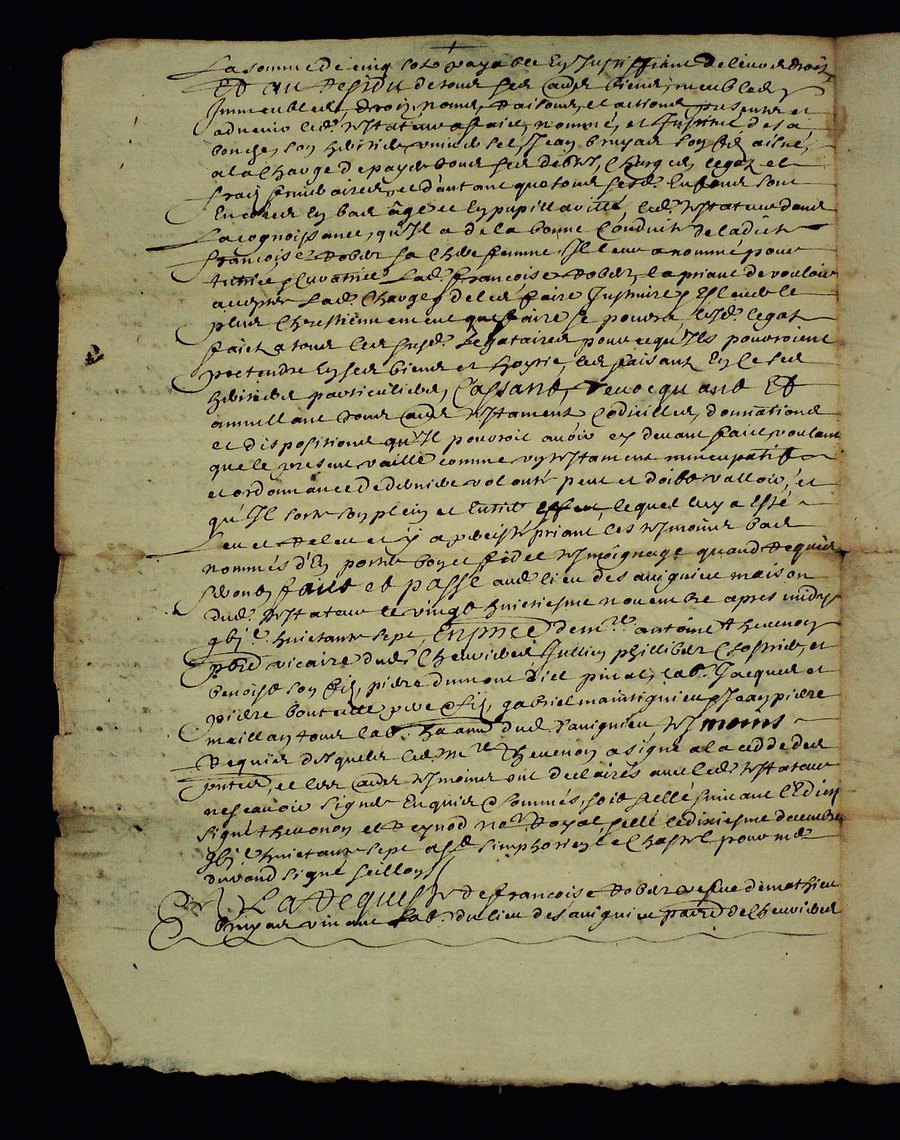 La somme de cinq sols payable En Justiffiant de leur droit
Et au Residu de tous ses autres biens, meubles
Immeubles, droits, noms, raisons, et actions presentz et
advenir led. testateur a faict, nommé, et Institué de sa
bouche, son heritier universel, Jean bruyas son fils aisné,
a la Charge de payer tous ses debtes, Charges, legatz et
fraiz funeraires, et d'autant que tous sesd. Enfans sont
Encores En bas âge et En pupillarité, led. testateur dans
La cognoissance, qu'Il a de la bonne Conduite de ladicte
françoise Rober sa Chere femme, Il leur a nommé pour
tutrice, Curatrice lad. françoise Rober, la priant de vouloir
accepter lad. Charge, & de les faire Instruire & Eslever le
plus Chrestiennement que faire se pourra lesd. legatz
faict a tous les susd. legataires pour ce qu'Ils pouvroient
pretendre En ses biens et hoyrie, les faisant En Ce ses
heritiers particuliers, Cassant, revocquant Et
annullant tous autres testaments Codicilles, donnations
et dispositions qu'Il pouvroit avoir cy devant faict, voulant
que le present vaille comme un testament nuncupatif
et ordonnance de derniere volonté peut et doibt valloir, et
qu'Il sorte son plein et Entier effect lequel luy a Esté
leu et releu et y a persisté priant les tesmoins bas
nommés d'En porter bon et fidel tesmoignage quand requis
seront, faict et passé aud. lieu des avignieu maison
dud. testateur le vingt huictiesme novembre apres midy
gbj.c huictante sept, En p(rese)nce de m.re antoine thevenon
pbre vicaire dud. Chevrieres Jullien phillibert et
benoist son fils, pierre dumont dict pinal, lab. Jacques et
pierre bouteille pere & fils, gabriel mantignieu, Jean pierre
meillan tous lab. dud. l'avignieu tesmoins
Requis desquels led. m.re thevenon a signé a la cedde des
p(rese)ntes, et les autres tesmoins ont declairés avec led. testateur
ne sçavoir signer Enquis & sommés, soit sellé suivant l'Edict
signé thevenon et Reynod no.re Royal sellé le dixiesme decembre
gbj.c huictante sept a St. simphorien le Chastel pour m.e
durand signé seillon
A La Requeste de françoise Rober vefve de mathieu
bruyas vivant lab. du lieu des avignieu par(oisse) de Chevrieres